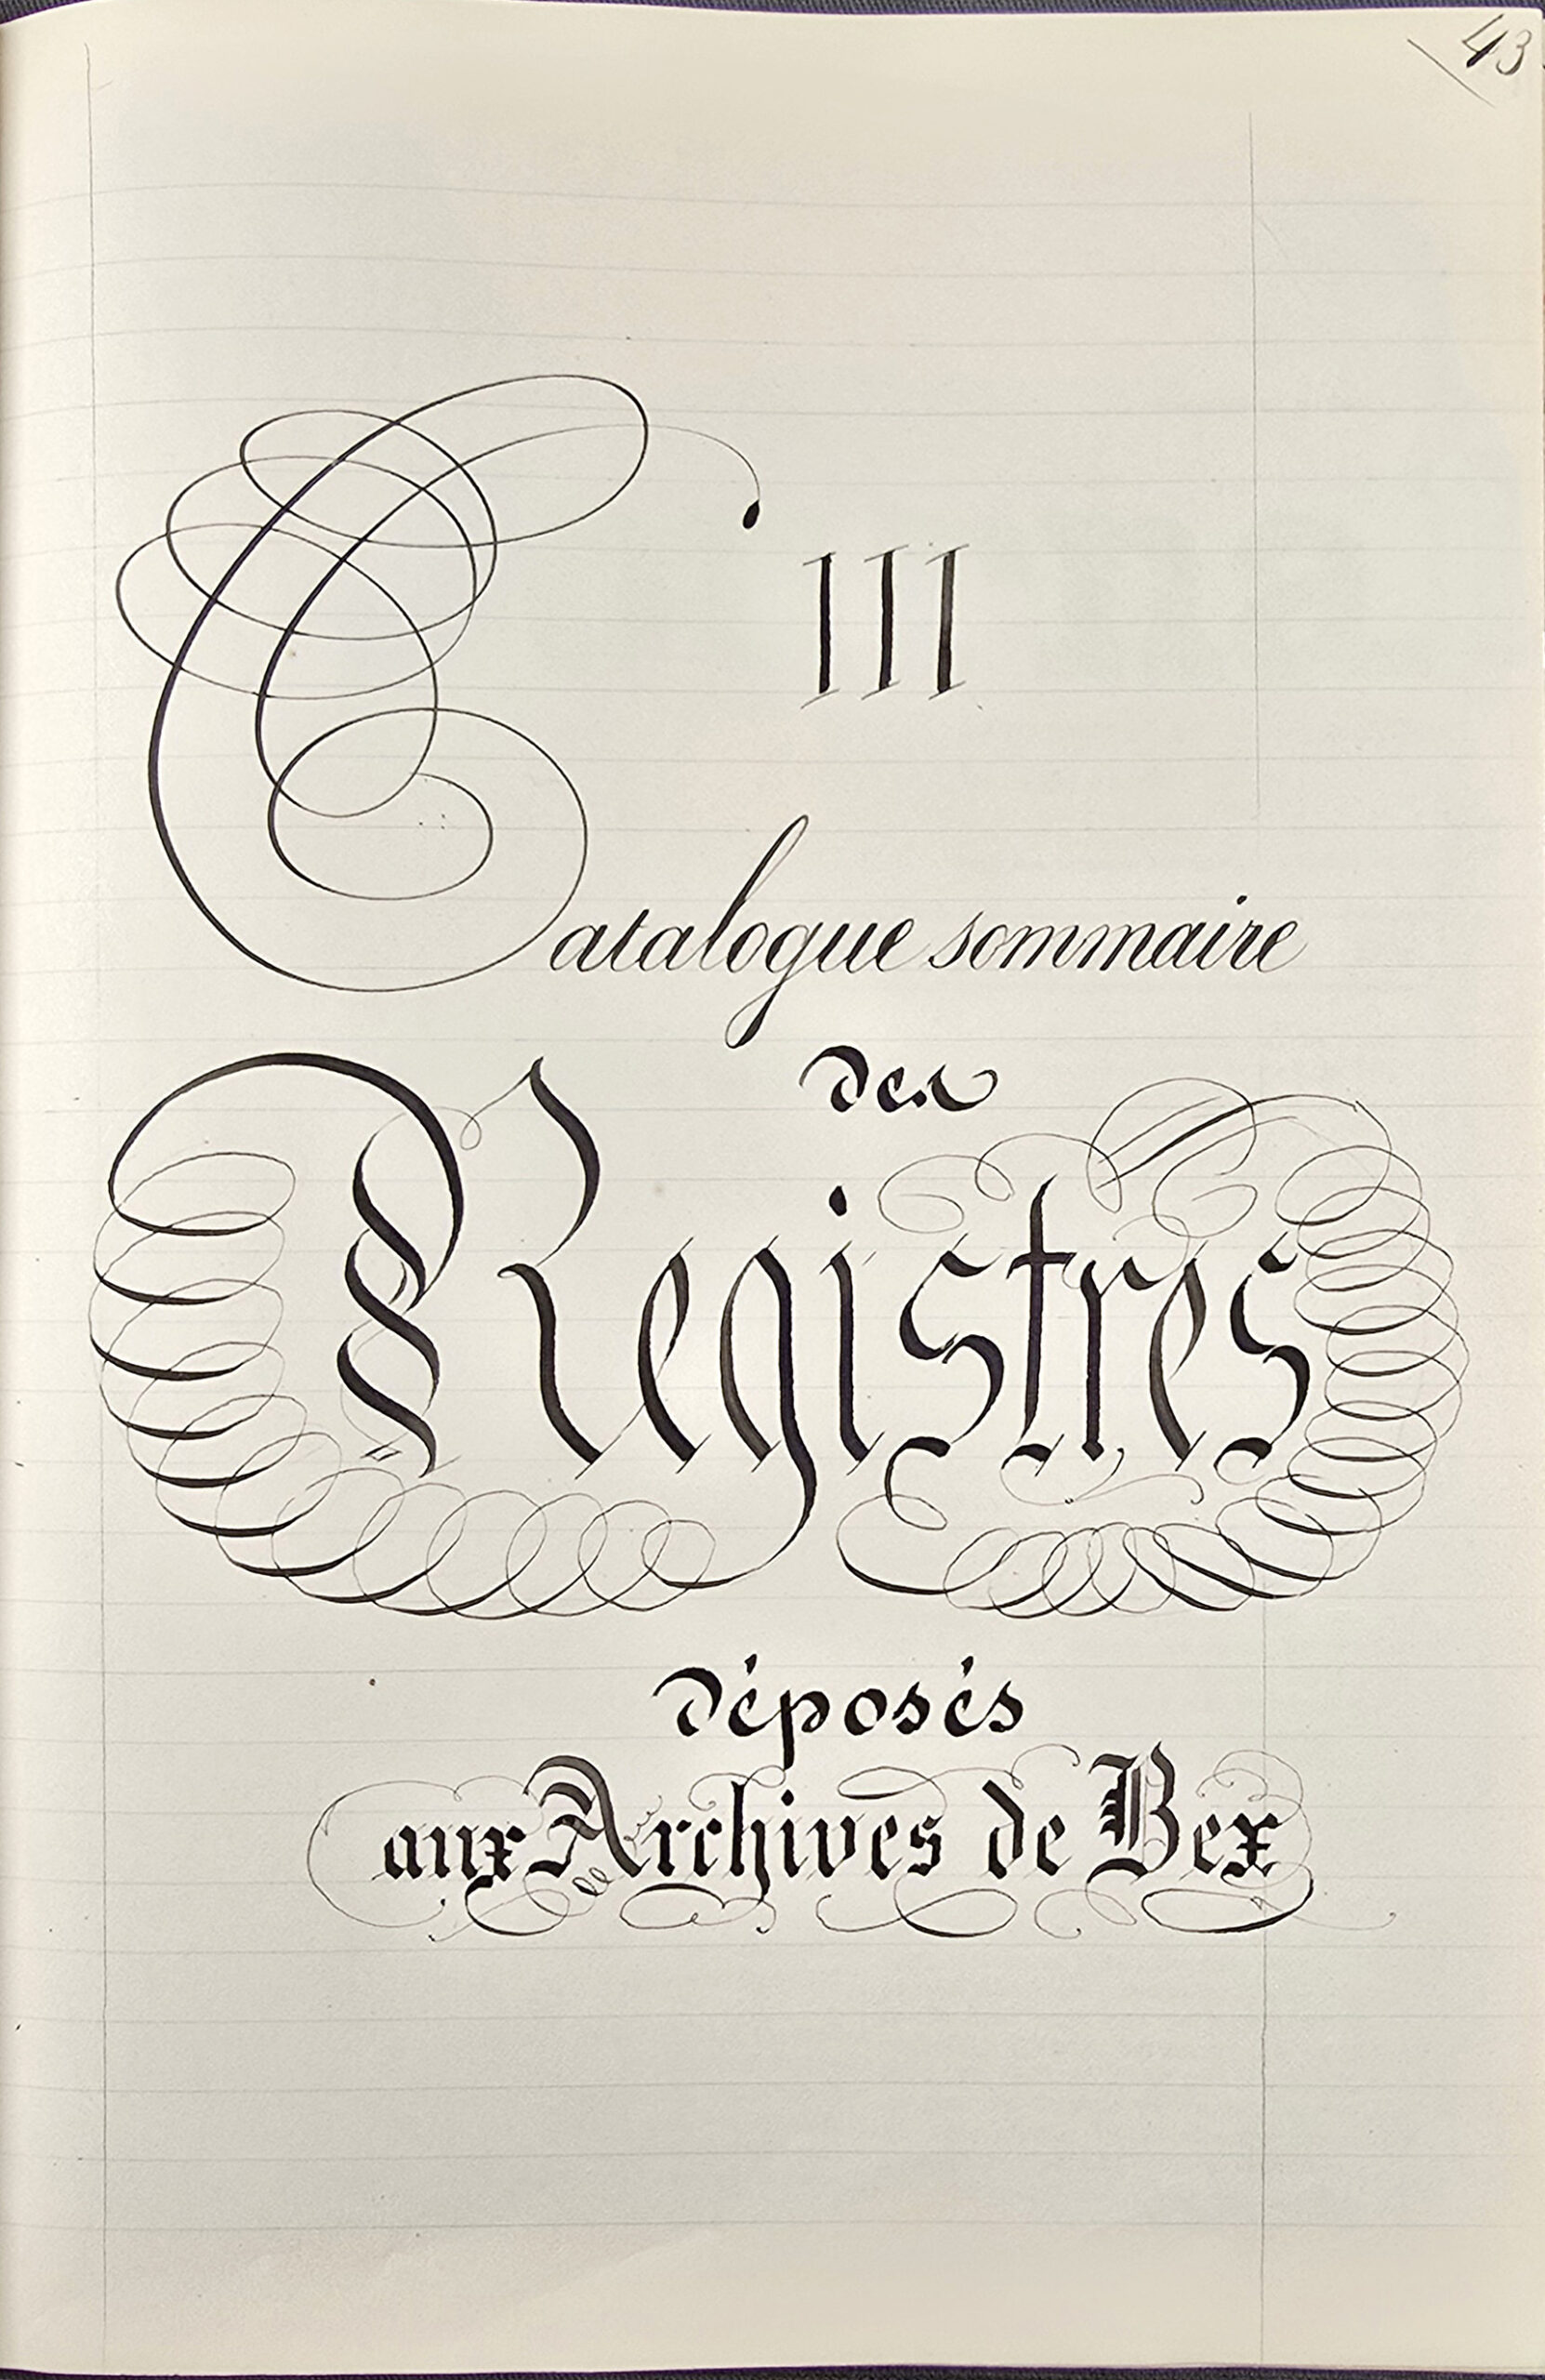 43
III
Catalogue sommaire
des
Registres
déposés
aux Archives de Bex